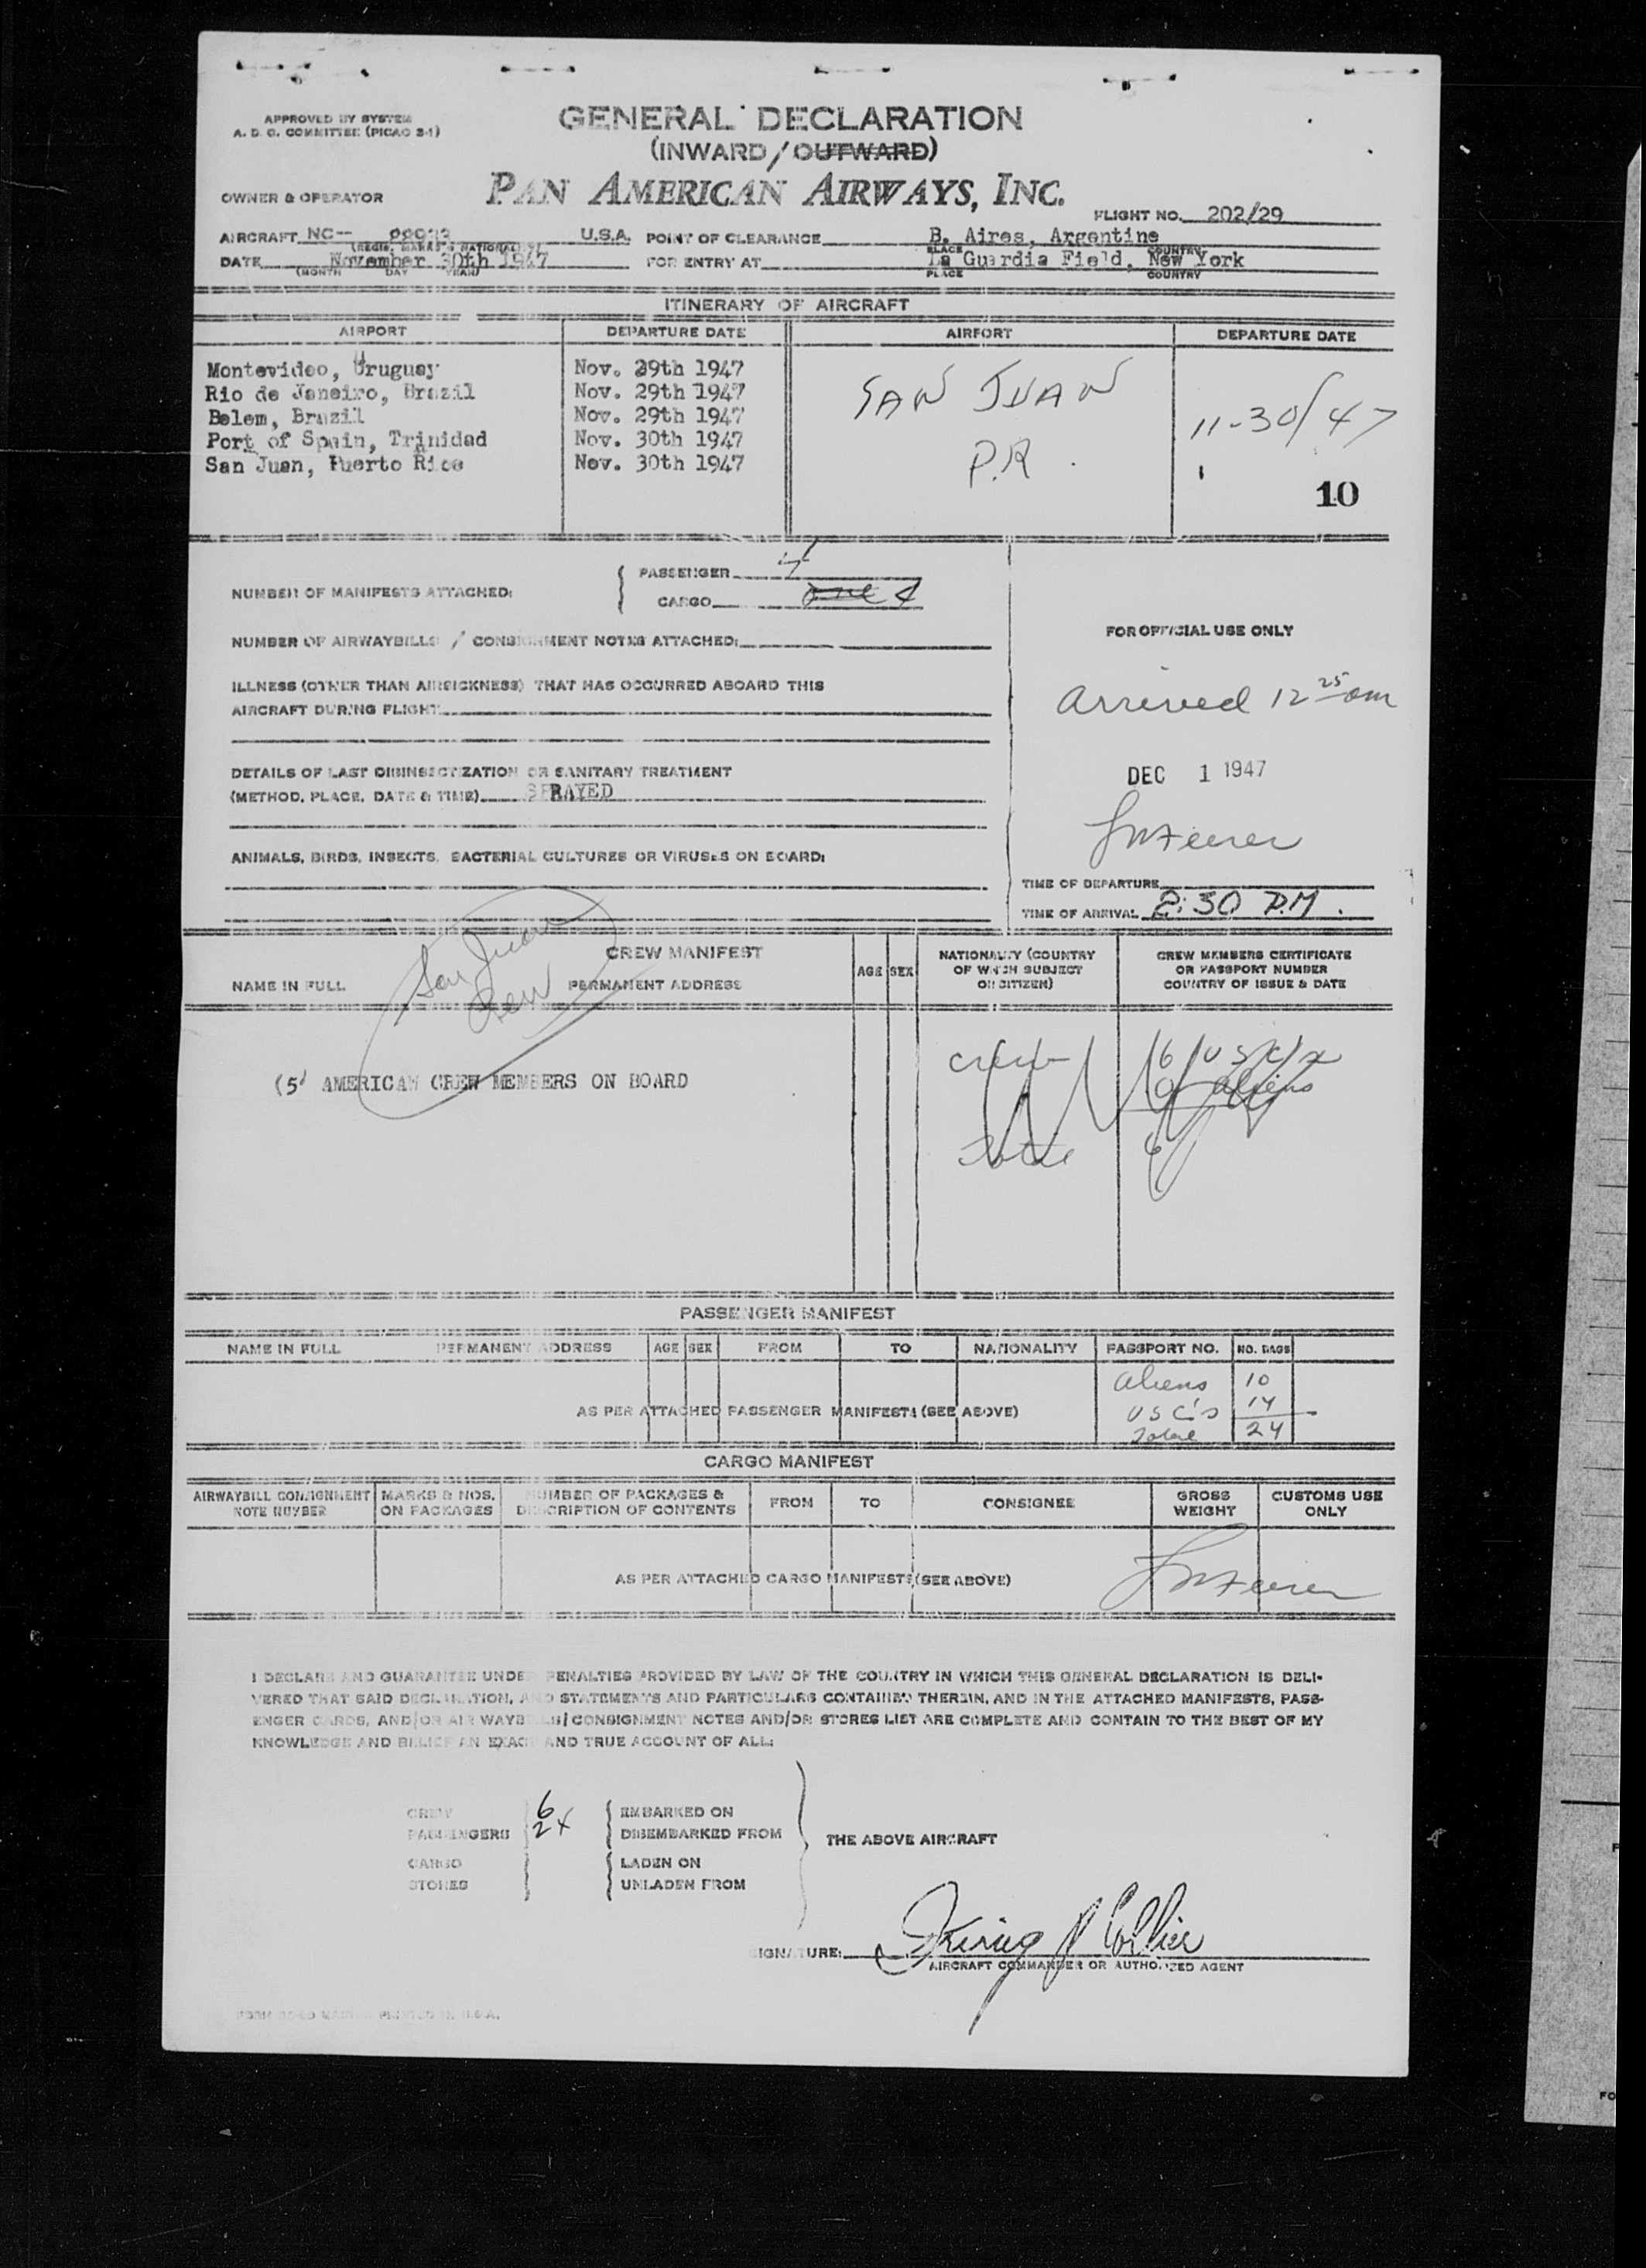 APPROVED BY SYSTEM
A. D. C. COMMITTEE (PICAO 2-1)
GENERAL DECLARATION
(INWARD/OUTWARD)
OWNER & OPERATOR
PAN AMERICAN AIRWAYS, INC.
FLIGHT NO. 202/29
AIRCRAFT NC-- U.S.A. POINT OF CLEARANCE B. Aires, Argentine
(REGIS. MARKS & NATIONALITY) PLACE COUNTRY
DATE November 30th 1947 FOR ENTRY AT La Guardia Field, New York
(MONTH DAY YEAR) PLACE COUNTRY
ITINERARY OF AIRCRAFT
AIRPORT DEPARTURE DATE AIRPORT DEPARTURE DATE
Montevideo, Uruguay Nov. 29th 1947
Rio de Janeiro, Brazil Nov. 29th 1947
SAN JUAN
Belem, Brazil Nov. 29th 1947
11-30/47
Port of Spain, Trinidad Nov. 30th 1947
San Juan, Puerto Rico Nov. 30th 1947
P.R.
10
NUMBER OF MANIFESTS ATTACHED:
PASSENGER
CARGO
NUMBER OF AIRWAYBILLS / CONSIGNMENT NOTES ATTACHED:
FOR OFFICIAL USE ONLY
ILLNESS (OTHER THAN AIRSICKNESS) THAT HAS OCCURRED ABOARD THIS
AIRCRAFT DURING FLIGHT
Arrived 12 25 am
DETAILS OF LAST DISINSECTIZATION OR SANITARY TREATMENT
(METHOD, PLACE, DATE & TIME) SPRAYED
DEC 1 1947
ANIMALS, BIRDS, INSECTS, BACTERIAL CULTURES OR VIRUSES ON BOARD:
TIME OF DEPARTURE
TIME OF ARRIVAL 2:30 P.M.
San Juan
Crew
CREW MANIFEST
NAME IN FULL PERMANENT ADDRESS AGE SEX
NATIONALITY (COUNTRY
OF WHICH SUBJECT
OR CITIZEN)
CREW MEMBERS CERTIFICATE
OR PASSPORT NUMBER
COUNTRY OF ISSUE & DATE
crew 6 USC's
0 aliens
(5) AMERICAN CREW MEMBERS ON BOARD
Total 6
PASSENGER MANIFEST
NAME IN FULL PERMANENT ADDRESS AGE SEX FROM TO NATIONALITY PASSPORT NO. NO. BAGS
Aliens 10
USC's 14
AS PER ATTACHED PASSENGER MANIFESTS (SEE ABOVE)
Total 24
CARGO MANIFEST
AIRWAYBILL CONSIGNMENT
NOTE NUMBER
MARKS & NOS.
ON PACKAGES
NUMBER OF PACKAGES &
DESCRIPTION OF CONTENTS
FROM TO CONSIGNEE
GROSS
WEIGHT
CUSTOMS USE
ONLY
AS PER ATTACHED CARGO MANIFESTS (SEE ABOVE)
I DECLARE AND GUARANTEE UNDER PENALTIES PROVIDED BY LAW OF THE COUNTRY IN WHICH THIS GENERAL DECLARATION IS DELI-
VERED THAT SAID DECLARATION, AND STATEMENTS AND PARTICULARS CONTAINED THEREIN, AND IN THE ATTACHED MANIFESTS, PASS-
ENGER CARDS, AND/OR AIR WAYBILLS/CONSIGNMENT NOTES AND/OR STORES LIST ARE COMPLETE AND CONTAIN TO THE BEST OF MY
KNOWLEDGE AND BELIEF AN EXACT AND TRUE ACCOUNT OF ALL:
CREW 6 EMBARKED ON
PASSENGERS 24 DISEMBARKED FROM
THE ABOVE AIRCRAFT
CARGO LADEN ON
STORES UNLADEN FROM
SIGNATURE:
AIRCRAFT COMMANDER OR AUTHORIZED AGENT
PRINTED IN U.S.A.